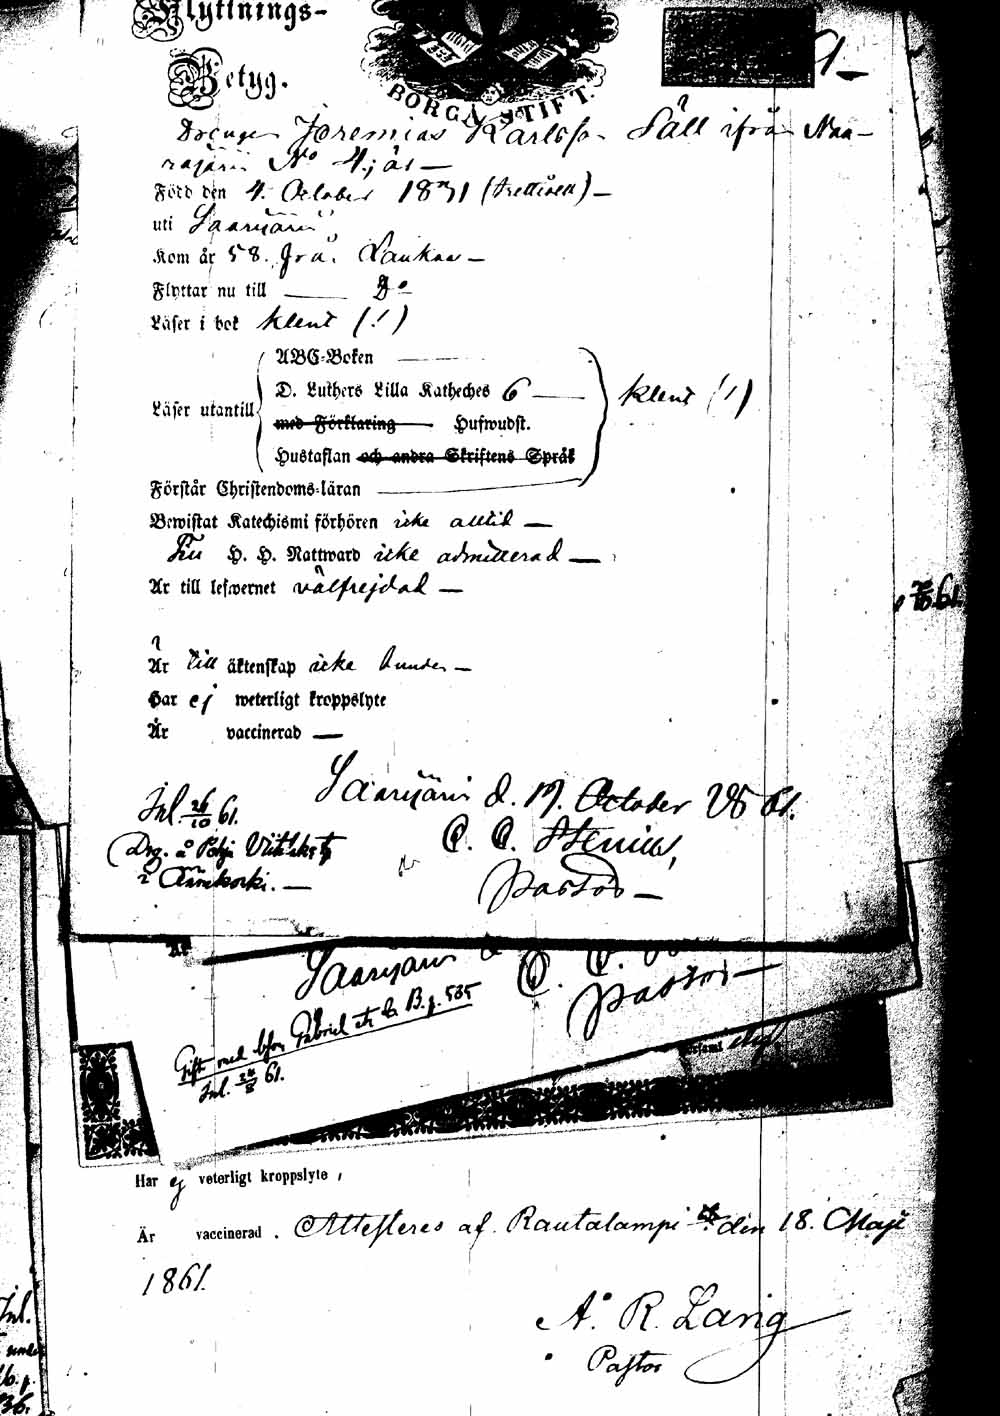 Flyttnings-
Betyg.
BORGÅ STIFT.
Drenge Jeremias Karlss. Säll ifrån Maa-
rajärvi No 4; är —
Född den 4. October 1831 (trettioett) —
uti Saarijärvi
Kom år 58. från Laukaa —
Flyttar nu till — Do
Läser i bok klent (!)
ABC-Boken —
D. Luthers Lilla Katheches 6 —
Läser utantill klent (!)
med Förklaring — Hufwudst.
Hustaflan och andra Skriftens Språk
Förstår Christendoms-läran —
Bewistat Katechismi förhören icke alltid —
H. H. Nattward icke admitterad —
Är till lefwernet välfrejdad —
Är till äktenskap icke bunden —
Har ej weterligt kroppslyte
Är vaccinerad —
Saarijärvi d. 17. October 1861.
Inl. 26/10 61. C. C. Stenius,
Drg. å Pohja
i Äänekoski. — Pastor —
Är
Saarijärvi C. C.
Pastor —
Gift med Gabriel B. p. 535
Inl. 24/8 61.
Har ej veterligt kroppslyte,
Är vaccinerad. Attesteras af Rautalampi den 18. Maji
1861.
A. R. Lang
Pastor
Inl.